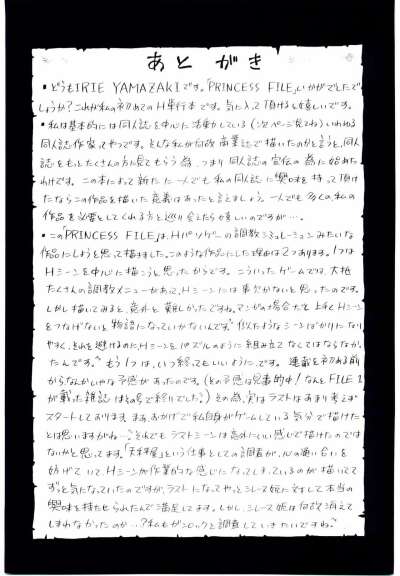 あとがき
・どうもIRIE YAMAZAKIです。「PRINCESS FILE」いかがでしたで
しょうか?これが私の初めてのH単行本です。気に入って頂けると嬉しいです。
・私は基本的には同人誌を中心に活動している(次ページ見てね)いわゆる
同人誌作家ってやつです。そんな私が何故商業誌で描いたのかと言うと、同人
誌をもっとたくさんの方に見てもらう為、つまり同人誌の宣伝の為に始めた
わけです。この本によって新たに一人でも私の同人誌に興味を持って頂け
たならこの作品を描いた意義はあったと言えましょう。一人でも多くの、私の
作品を必要としてくれる方と巡り会えたら嬉しいのですが…。
・この「PRINCESS FILE」は、Hパソゲーの調教シミュレーションみたいな
作品にしようと思って描きました。このような作品にした理由は2つあります。1つは
Hシーンを中心に描こうと思ったからです。こういったゲームでは、大抵
たくさんの調教メニューがあって、Hシーンには事欠かないと思ったのです。
しかし描いてみると、意外と難しかったですね。マンガの場合だと上手くHシーン
をつなげないと物語になっていかないんです。似たようなシーンばかりになり
やすく、それを避けるのにHシーンをパズルのように組み立てなくてはならなか
ったんです。もう1つは、いつ終ってもいいように、です。連載を始める前
からなんかいやな予感があったのです。(その予感は見事的中!なんとFILE 1
が載った雑誌はその号で終りでした。)その為、実はラストはあまり考えず
スタートしております。まあ、おかげで私自身がゲームしている気分で描けた
とは思いますがね…。それでもラストシーンは意外といい感じで描けたのでは
ないかと思ってます。という仕事としての調教が、心の通い合いを
妨げていて、Hシーンが作業的な感じになってしまっているのが描いてて
ずっと気になっていたのですが、ラストになってやっとシレーヌ姫に対して本当の
興味を持たせられたんで満足してます。しかし、シレーヌ姫は何故消えて
しまわなかったのか…?私もガンロックと調査していきたいですね。